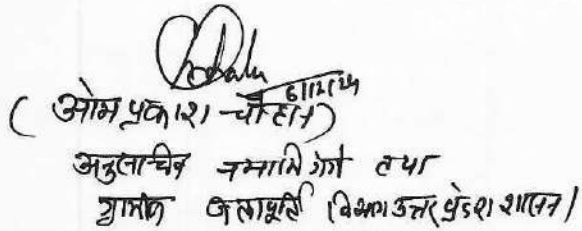 6/12/24
(ओम प्रकाश चौहान)
अनुसचिव नमामि गंगे तथा
ग्रामीण जलापूर्ति विभाग उत्तर प्रदेश शासन।